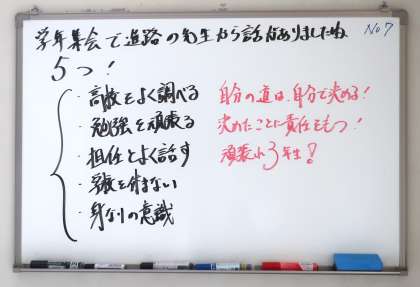 学年集会で進路の先生から話がありましたね
No7
5つ!
・高校をよく調べる
・勉強を頑張る
・担任とよく話す
・学校を休まない
・身なりの意識
自分の道は、自分で決める!
決めたことに責任をもつ!
頑張れ3年生!